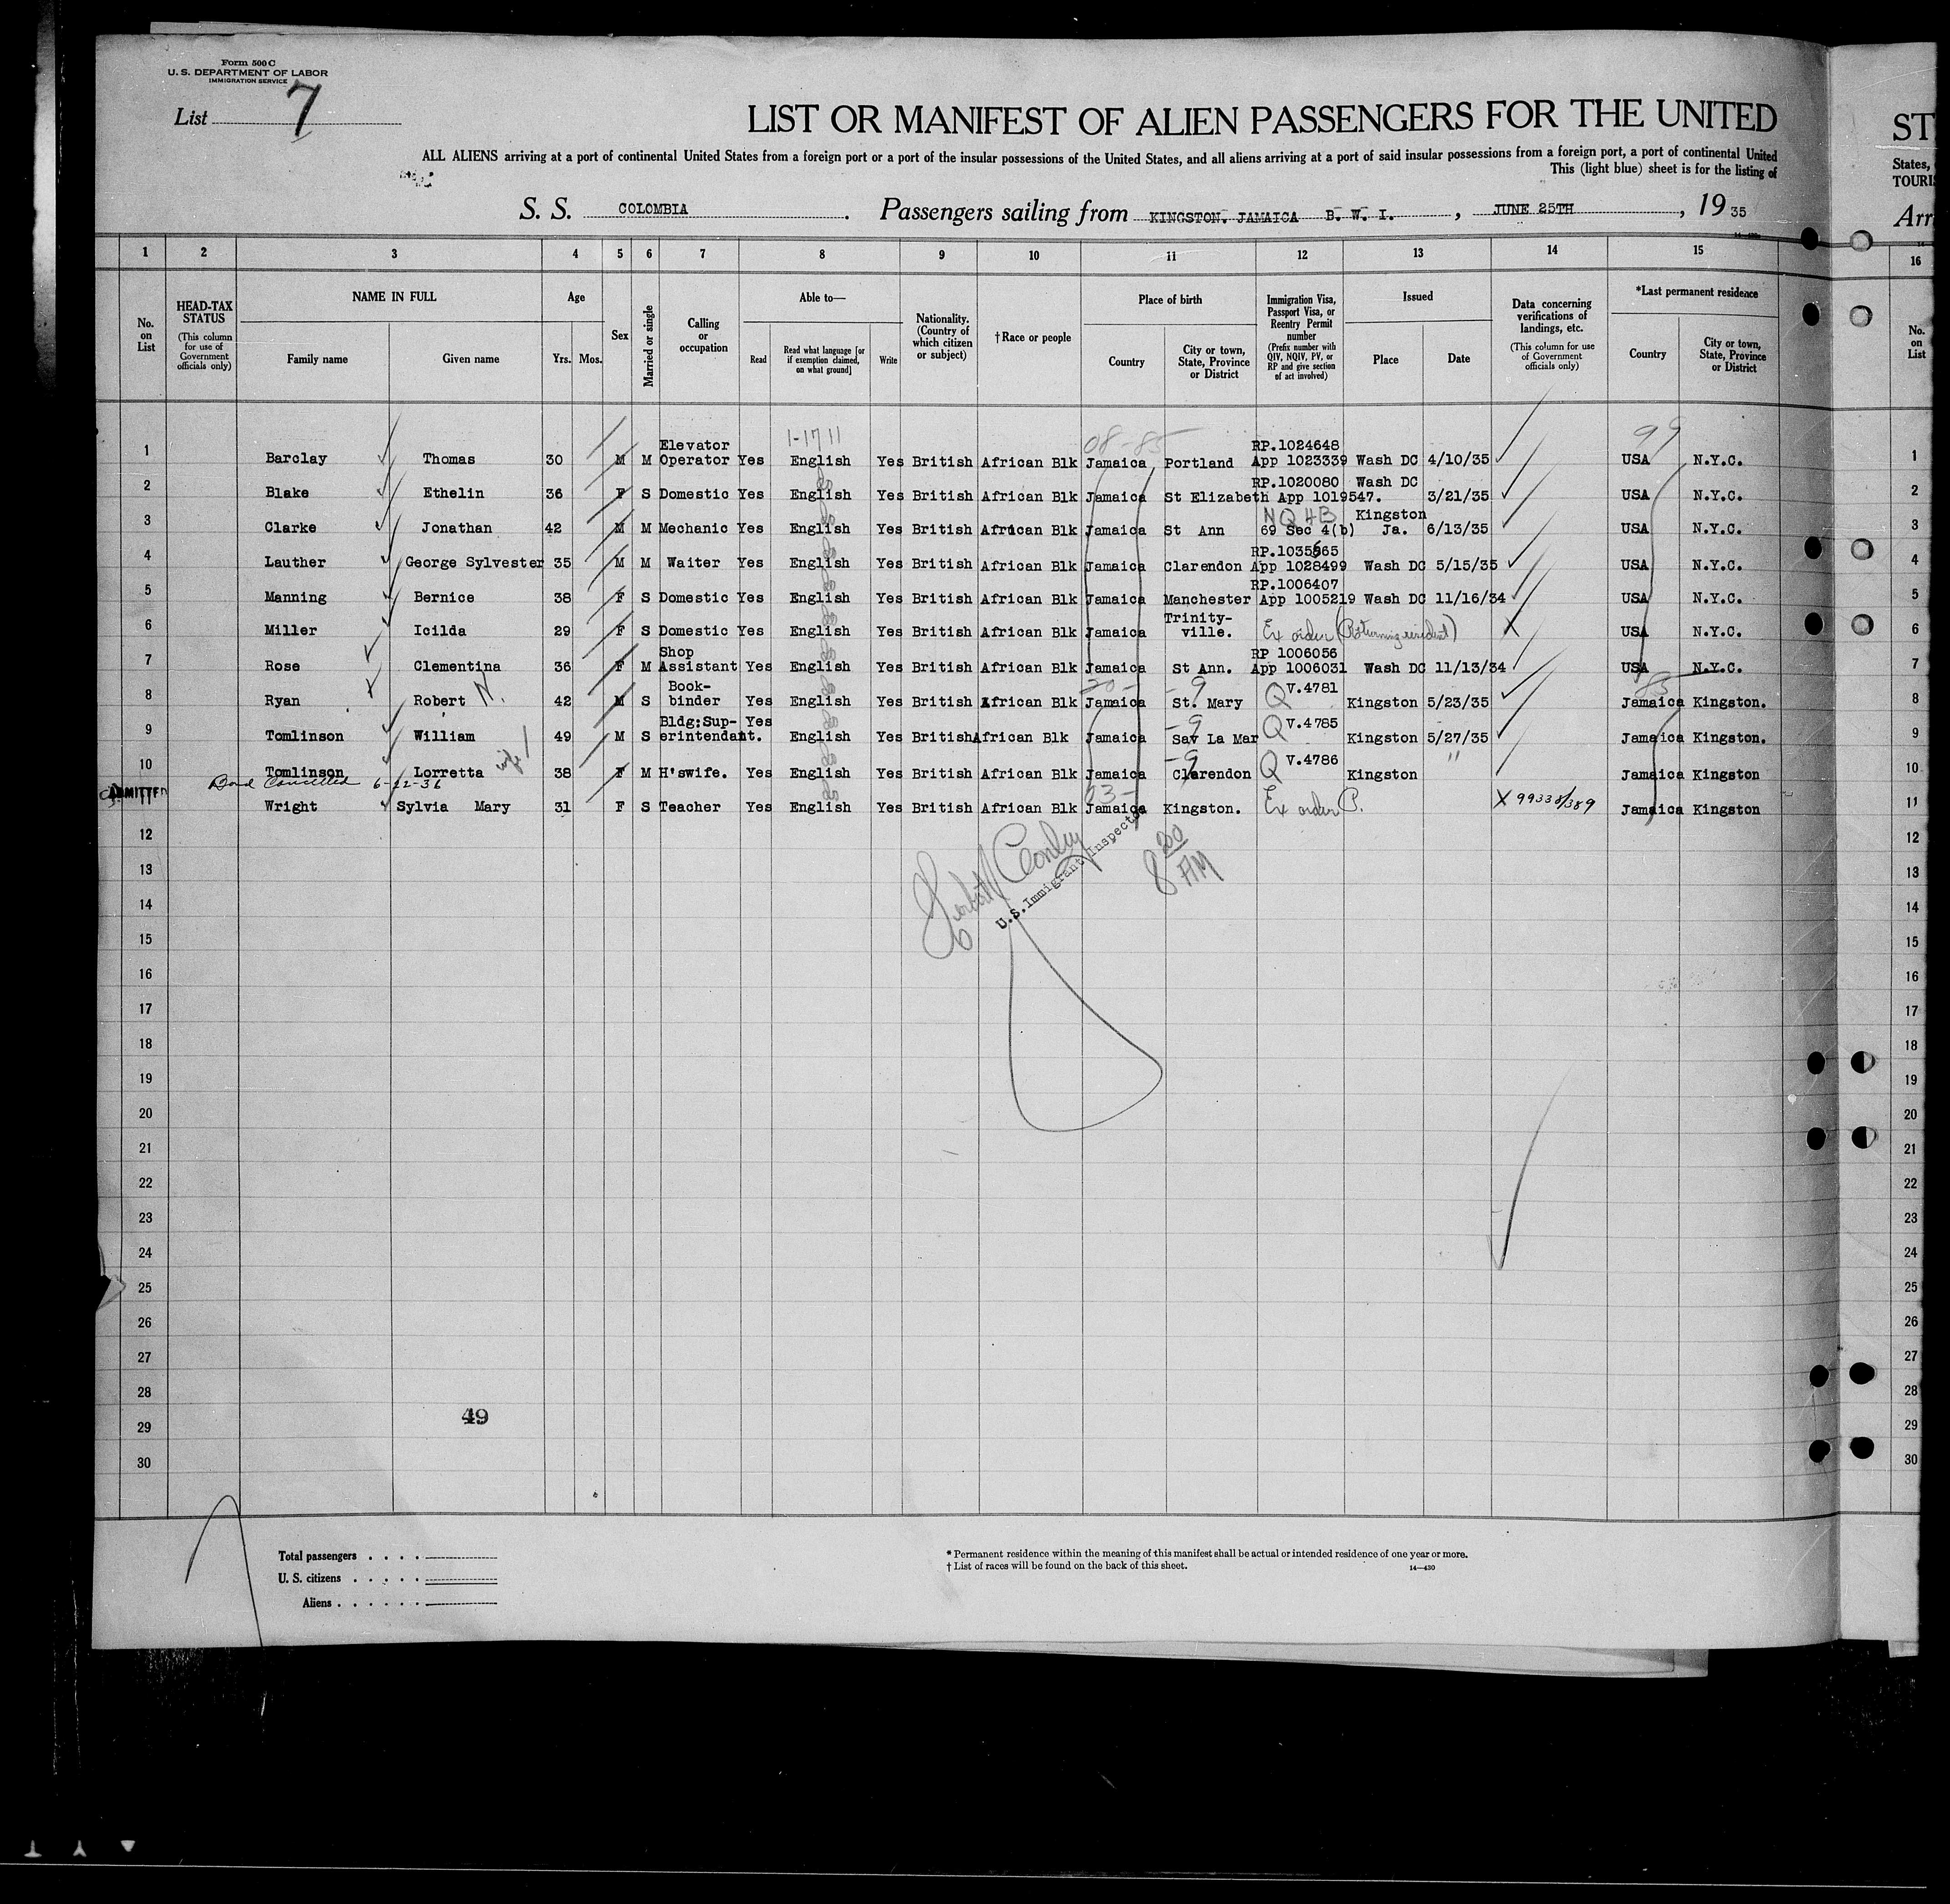 Form 500 C
U. S. DEPARTMENT OF LABOR
IMMIGRATION SERVICE
List 7
LIST OR MANIFEST OF ALIEN PASSENGERS FOR THE UNITED
ST
ALL ALIENS arriving at a port of continental United States from a foreign port or a port of the insular possessions of the United States, and all aliens arriving at a port of said insular possessions from a foreign port, a port of continental United
States,
This (light blue) sheet is for the listing of
TOURI
S. S. COLOMBIA. Passengers sailing from KINGSTON, JAMAICA B. W. I., JUNE 25TH, 19 35
Arr
1 2 3 4 5 6 7 8 9 10 11 12 13 14 15 16
No. on List
HEAD-TAX STATUS (This column for use of Government officials only)
NAME IN FULL
Family name Given name
Age
Yrs. Mos.
Sex
Married or single
Calling or occupation
Able to—
Read
Read what language [or if exemption claimed, on what ground]
Write
Nationality. (Country of which citizen or subject)
†Race or people
Place of birth
Country
City or town, State, Province or District
Immigration Visa, Passport Visa, or Reentry Permit number (Prefix number with QIV, NQIV, PV, or RP and give section of act involved)
Issued
Place Date
Data concerning verifications of landings, etc. (This column for use of Government officials only)
*Last permanent residence
Country
City or town, State, Province or District
No. on List
1-17 11 08-85 99
1 Barclay Thomas 30 M M Elevator Operator Yes English Yes British African Blk Jamaica Portland RP.1024648 App 1023339 Wash DC 4/10/35 USA N.Y.C. 1
2 Blake Ethelin 36 F S Domestic Yes English Yes British African Blk Jamaica St Elizabeth RP.1020080 App 1019547. Wash DC 3/21/35 USA N.Y.C. 2
3 Clarke Jonathan 42 M M Mechanic Yes English Yes British African Blk Jamaica St Ann NQ 4B 69 Sec 4(b) Kingston Ja. 6/13/35 USA N.Y.C. 3
4 Lauther George Sylvester 35 M M Waiter Yes English Yes British African Blk Jamaica Clarendon RP.1035565 App 1028499 Wash DC 5/15/35 USA N.Y.C. 4
5 Manning Bernice 38 F S Domestic Yes English Yes British African Blk Jamaica Manchester RP.1006407 App 1005219 Wash DC 11/16/34 USA N.Y.C. 5
6 Miller Icilda 29 F S Domestic Yes English Yes British African Blk Jamaica Trinity-ville. Ex order (Returning resident) X USA N.Y.C. 6
7 Rose Clementina 36 F M Shop Assistant Yes English Yes British African Blk Jamaica St Ann. RP 1006056 App 1006031 Wash DC 11/13/34 USA N.Y.C. 7
8 Ryan Robert N. 42 M S Book-binder Yes English Yes British African Blk Jamaica St. Mary Q V.4781 Kingston 5/23/35 Jamaica Kingston. 8
9 Tomlinson William 49 M S Bldg:Sup-erintendant. Yes English Yes British African Blk Jamaica Sav La Mar Q V.4785 Kingston 5/27/35 Jamaica Kingston. 9
10 Tomlinson Lorretta wife 38 F M H'swife. Yes English Yes British African Blk Jamaica Clarendon Q V.4786 Kingston " Jamaica Kingston 10
Bond Cancelled 6-22-36
ADMITTED
11 Wright Sylvia Mary 31 F S Teacher Yes English Yes British African Blk Jamaica Kingston. Ex order P. X 99338/389 Jamaica Kingston 11
12 12
13 13
U.S. Immigrant Inspector
8 00 AM
14 14
15 15
16 16
17 17
18 18
19 19
20 20
21 21
22 22
23 23
24 24
25 25
26 26
27 27
28 28
49
29 29
30 30
Total passengers
U. S. citizens
Aliens
* Permanent residence within the meaning of this manifest shall be actual or intended residence of one year or more.
† List of races will be found on the back of this sheet.
14—430